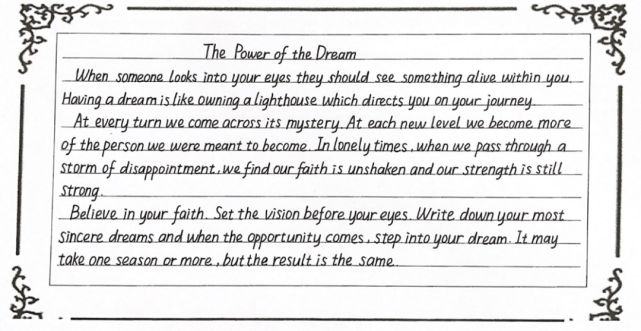 The Power of the Dream
When someone looks into your eyes they should see something alive within you.
Having a dream is like owning a lighthouse which directs you on your journey.
At every turn we come across its mystery. At each new level we become more
of the person we were meant to become. In lonely times, when we pass through a
storm of disappointment, we find our faith is unshaken and our strength is still
strong.
Believe in your faith. Set the vision before your eyes. Write down your most
sincere dreams and when the opportunity comes, step into your dream. It may
take one season or more, but the result is the same.